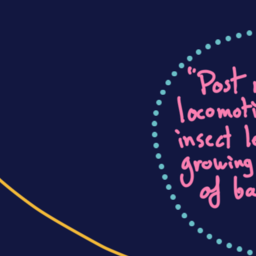 "Post
locomoti
insect l
growing
of ba